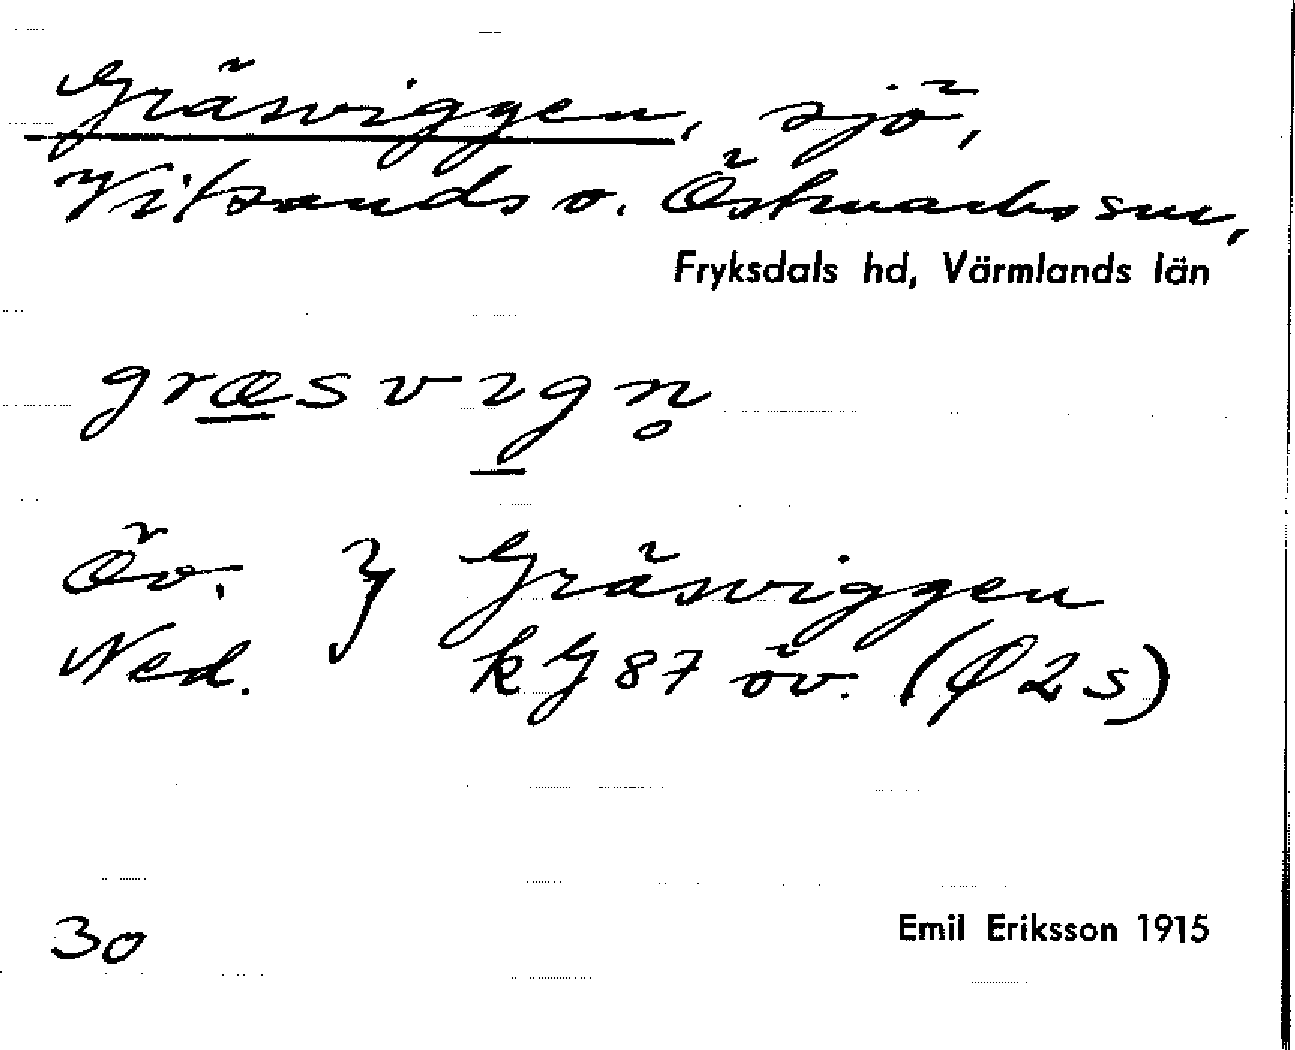 Gräsviggen, sjö,
Vitsands o. Östmarks snr,
Fryksdals hd, Värmlands län
græsvıgn̥
Öv. } Gräsviggen
Ned. kG 87 öv. (Ø 2 s)
30
Emil Eriksson 1915